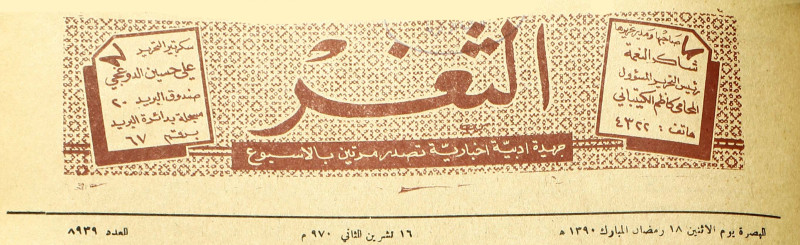 الثغر
صاحبها ومدير تحريرها
شاكر النعمة
رئيس التحرير المسؤول
المحامي كاظم الكيتباني
هاتف : ٤٣٢٢
سكرتير التحرير
علي حسين الدوغجي
صندوق البريد ٢٠
مسجلة بدائرة البريد
برقم ٦٧
جريدة ادبية اخبارية تصدر مرتين بالاسبوع
البصرة يوم الاثنين ١٨ رمضان المبارك ١٣٩٠ هـ
١٦ تشرين الثاني ٩٧٠ م
العدد ٨٩٣٩